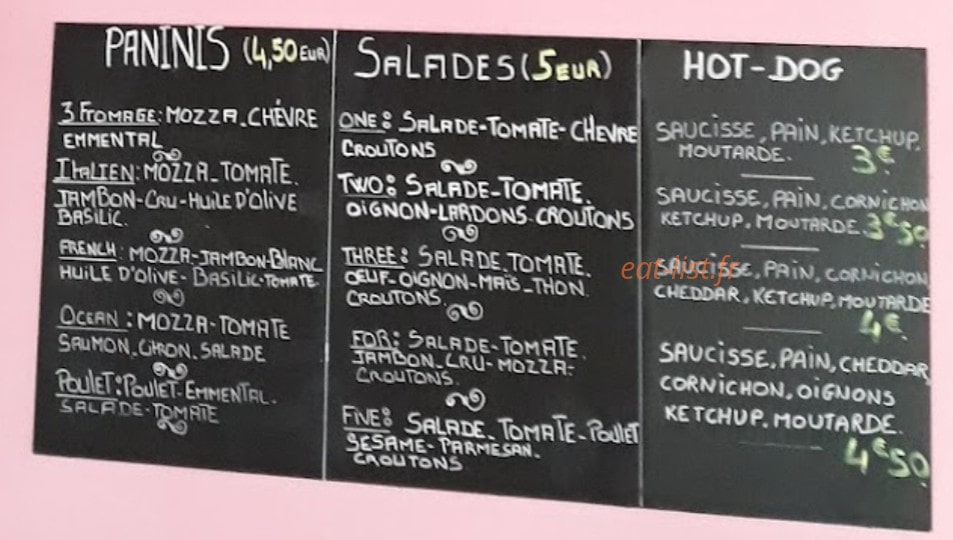 PANINIS (4,50 EUR)
3 FROMAGE: MOZZA_CHÉVRE
EMMENTAL
ITALIEN: MOZZA_TOMATE.
JAMBON-CRU-HUILE D'OLIVE
BASILIC.
FRENCH: MOZZA-JAMBON-BLANC
HUILE D'OLIVE-BASILIC-TOMATE.
OCEAN: MOZZA-TOMATE
SAUMON_CITRON_SALADE
POULET: POULET-EMMENTAL.
SALADE-TOMATE
SALADES (5 EUR)
ONE: SALADE-TOMATE-CHEVRE
CROUTONS
TWO: SALADE-TOMATE.
OIGNON-LARDONS-CROUTONS
THREE: SALADE_TOMATE.
OEUF-OIGNON-MAÏS_THON.
CROUTONS.
FOR: SALADE-TOMATE.
JAMBON_CRU-MOZZA-
CROUTONS.
FIVE: SALADE_TOMATE-POULET
SESAME-PARMESAN-
CROUTONS
HOT-DOG
SAUCISSE, PAIN, KETCHUP.
MOUTARDE. 3€
SAUCISSE, PAIN, CORNICHON
KETCHUP. MOUTARDE. 3€50
SAUCISSE, PAIN, CORNICHON
CHEDDAR, KETCHUP, MOUTARDE
4€
SAUCISSE, PAIN, CHEDDAR,
CORNICHON, OIGNONS
KETCHUP. MOUTARDE.
4€50
eat-list.fr